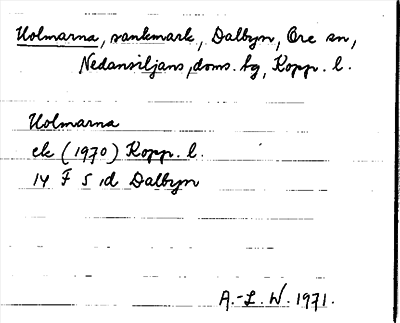 Uolmarna, sankmark, Dalbyn, Ore sn,
Nedansiljans doms. hg, Kopp. l.
Uolmarna
ek (1970) Kopp. l.
14 F 5 d Dalbyn
A.-L. W. 1971.